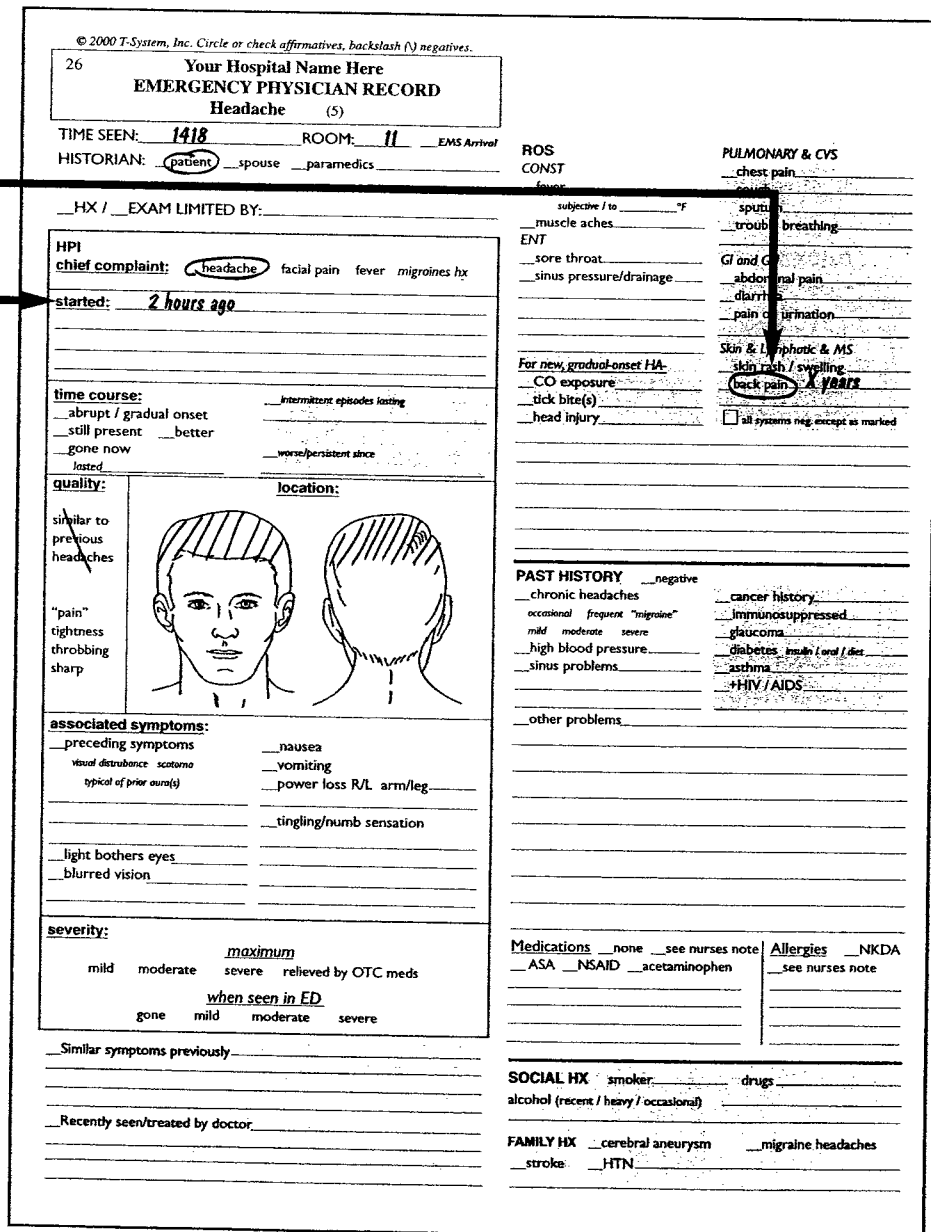 © 2000 T-System, Inc. Circle or check affirmatives, backslash (\) negatives.
26
Your Hospital Name Here
EMERGENCY PHYSICIAN RECORD
Headache (5)
TIME SEEN: 1418 ROOM: 11 __EMS Arrival
HISTORIAN: patient __spouse __paramedics
__HX / __EXAM LIMITED BY:
HPI
chief complaint: headache facial pain fever migroines hx
started: 2 hours ago
time course:
__abrupt / gradual onset
__still present __better
__gone now
lasted
__intermittent episodes lasting
__worse/persistent since
quality:
similar to
previous
headaches
"pain"
tightness
throbbing
sharp
location:
associated symptoms:
__preceding symptoms
visual distrubance scotoma
typical of prior aura(s)
__light bothers eyes
__blurred vision
__nausea
__vomiting
__power loss R/L arm/leg
__tingling/numb sensation
severity:
maximum
mild moderate severe relieved by OTC meds
when seen in ED
gone mild moderate severe
__Similar symptoms previously
__Recently seen/treated by doctor
ROS
CONST
__fever
subjective / to ______°F
__muscle aches
ENT
__sore throat
__sinus pressure/drainage
For new, gradual-onset HA-
__CO exposure
__tick bite(s)
__head injury
PULMONARY & CVS
__chest pain
__sputum
__trouble breathing
GI and
__abdominal pain
__diarrhea
__pain urination
Skin & Lymphatic & MS
__skin rash / swelling
back pain X years
all systems neg. except as marked
PAST HISTORY __negative
__chronic headaches
occasional frequent "migraine"
mild moderate severe
__high blood pressure
__sinus problems
__cancer history
__immunosuppressed
__glaucoma
__diabetes insulin / oral / diet
__asthma
__+HIV / AIDS
__other problems
Medications __none __see nurses note
__ASA __NSAID __acetaminophen
Allergies __NKDA
__see nurses note
SOCIAL HX smoker drugs
alcohol (recent / heavy / occasional)
FAMILY HX __cerebral aneurysm __migraine headaches
__stroke __HTN